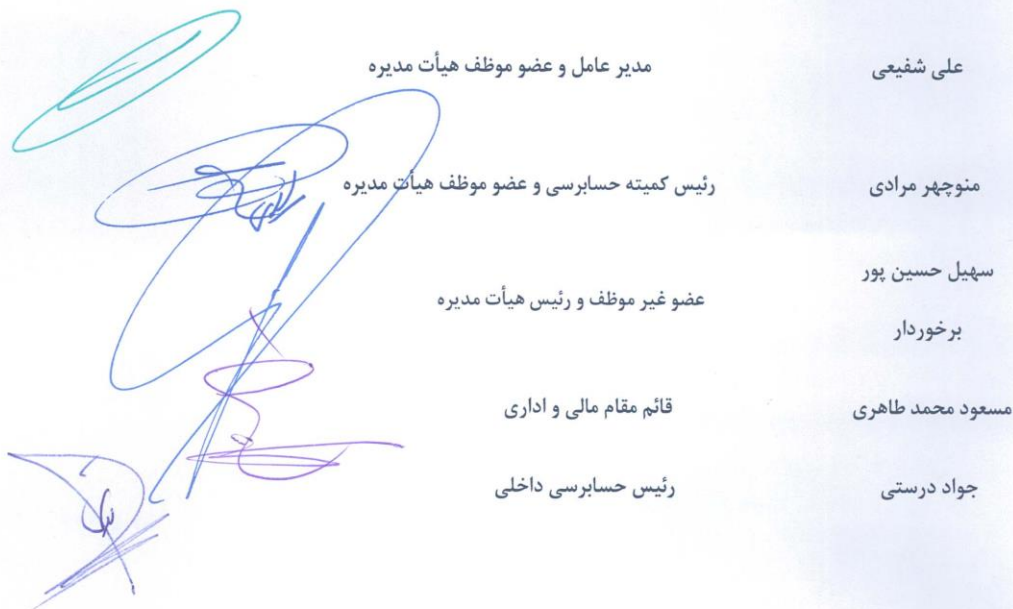 علی شفیعی مدیر عامل و عضو موظف هیأت مدیره
منوچهر مرادی رئیس کمیته حسابرسی و عضو موظف هیأت مدیره
سهیل حسین پور
برخوردار عضو غیر موظف و رئیس هیأت مدیره
مسعود محمد طاهری قائم مقام مالی و اداری
جواد درستی رئیس حسابرسی داخلی